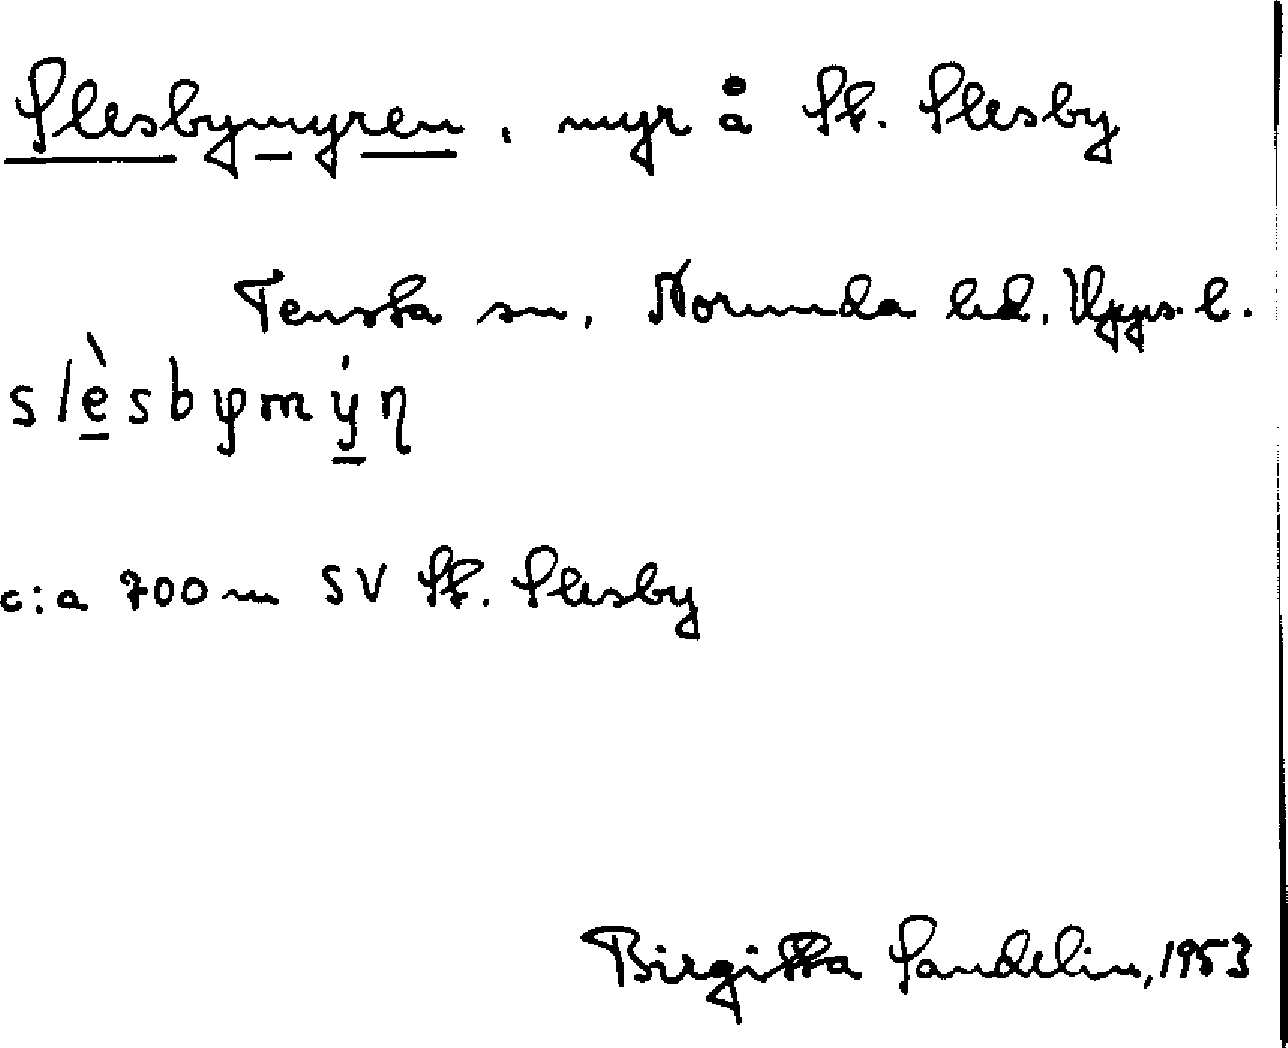 Slesbymyren, myr å St. Slesby
Tensta sn, Norunda hd. Upps. l.
slèsbymýn
c:a 700 m SV St. Slesby
Birgitta Sandelin, 1953